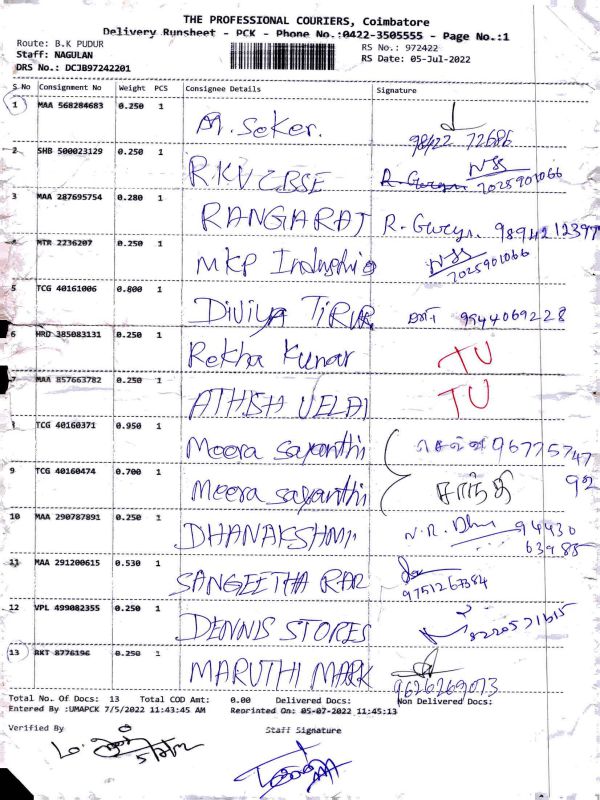 THE PROFESSIONAL COURIERS, Coimbatore
Delivery Runsheet - PCK - Phone No.:0422-3505555 - Page No.:1
Route: B.K PUDUR
RS No.: 972422
Staff: NAGULAN
RS Date: 05-Jul-2022
DRS No.: DCJB97242201
S No Consignment No Weight PCS Consignee Details Signature
1 MAA 568284683 0.250 1 M. Seker. 98422 72686
2 SHB 500023129 0.250 1 RKV CBSE 7025901066
3 MAA 287695754 0.280 1 RANGARAJ R. 9894212397
4 MTR 2236207 0.250 1 MKP 7025901066
5 TCG 40161006 0.800 1 DIVIYA TIRUR 9944069228
6 HRD 385083131 0.250 1 Rekha Kumar TU
7 MAA 857663782 0.250 1 ATHISH VELAI TU
8 TCG 40160371 0.950 1 Meera sayanthi 96775747
9 TCG 40160474 0.700 1 Meera sayanthi சாந்தி 92
10 MAA 290787891 0.250 1 DHANAKSHMI N.R. 94430
63988
11 MAA 291200615 0.530 1 SANGEETHA RAR 9751267384
12 VPL 499082355 0.250 1 DENNIS STORES 8220571615
13 RKT 8776196 0.250 1 MARUTHI MARK 9626269073
Total No. Of Docs: 13 Total COD Amt: 0.00 Delivered Docs: Non Delivered Docs:
Entered By :UMAPCK 7/5/2022 11:43:45 AM Reprinted On: 05-07-2022 11:45:13
Verified By Staff Signature